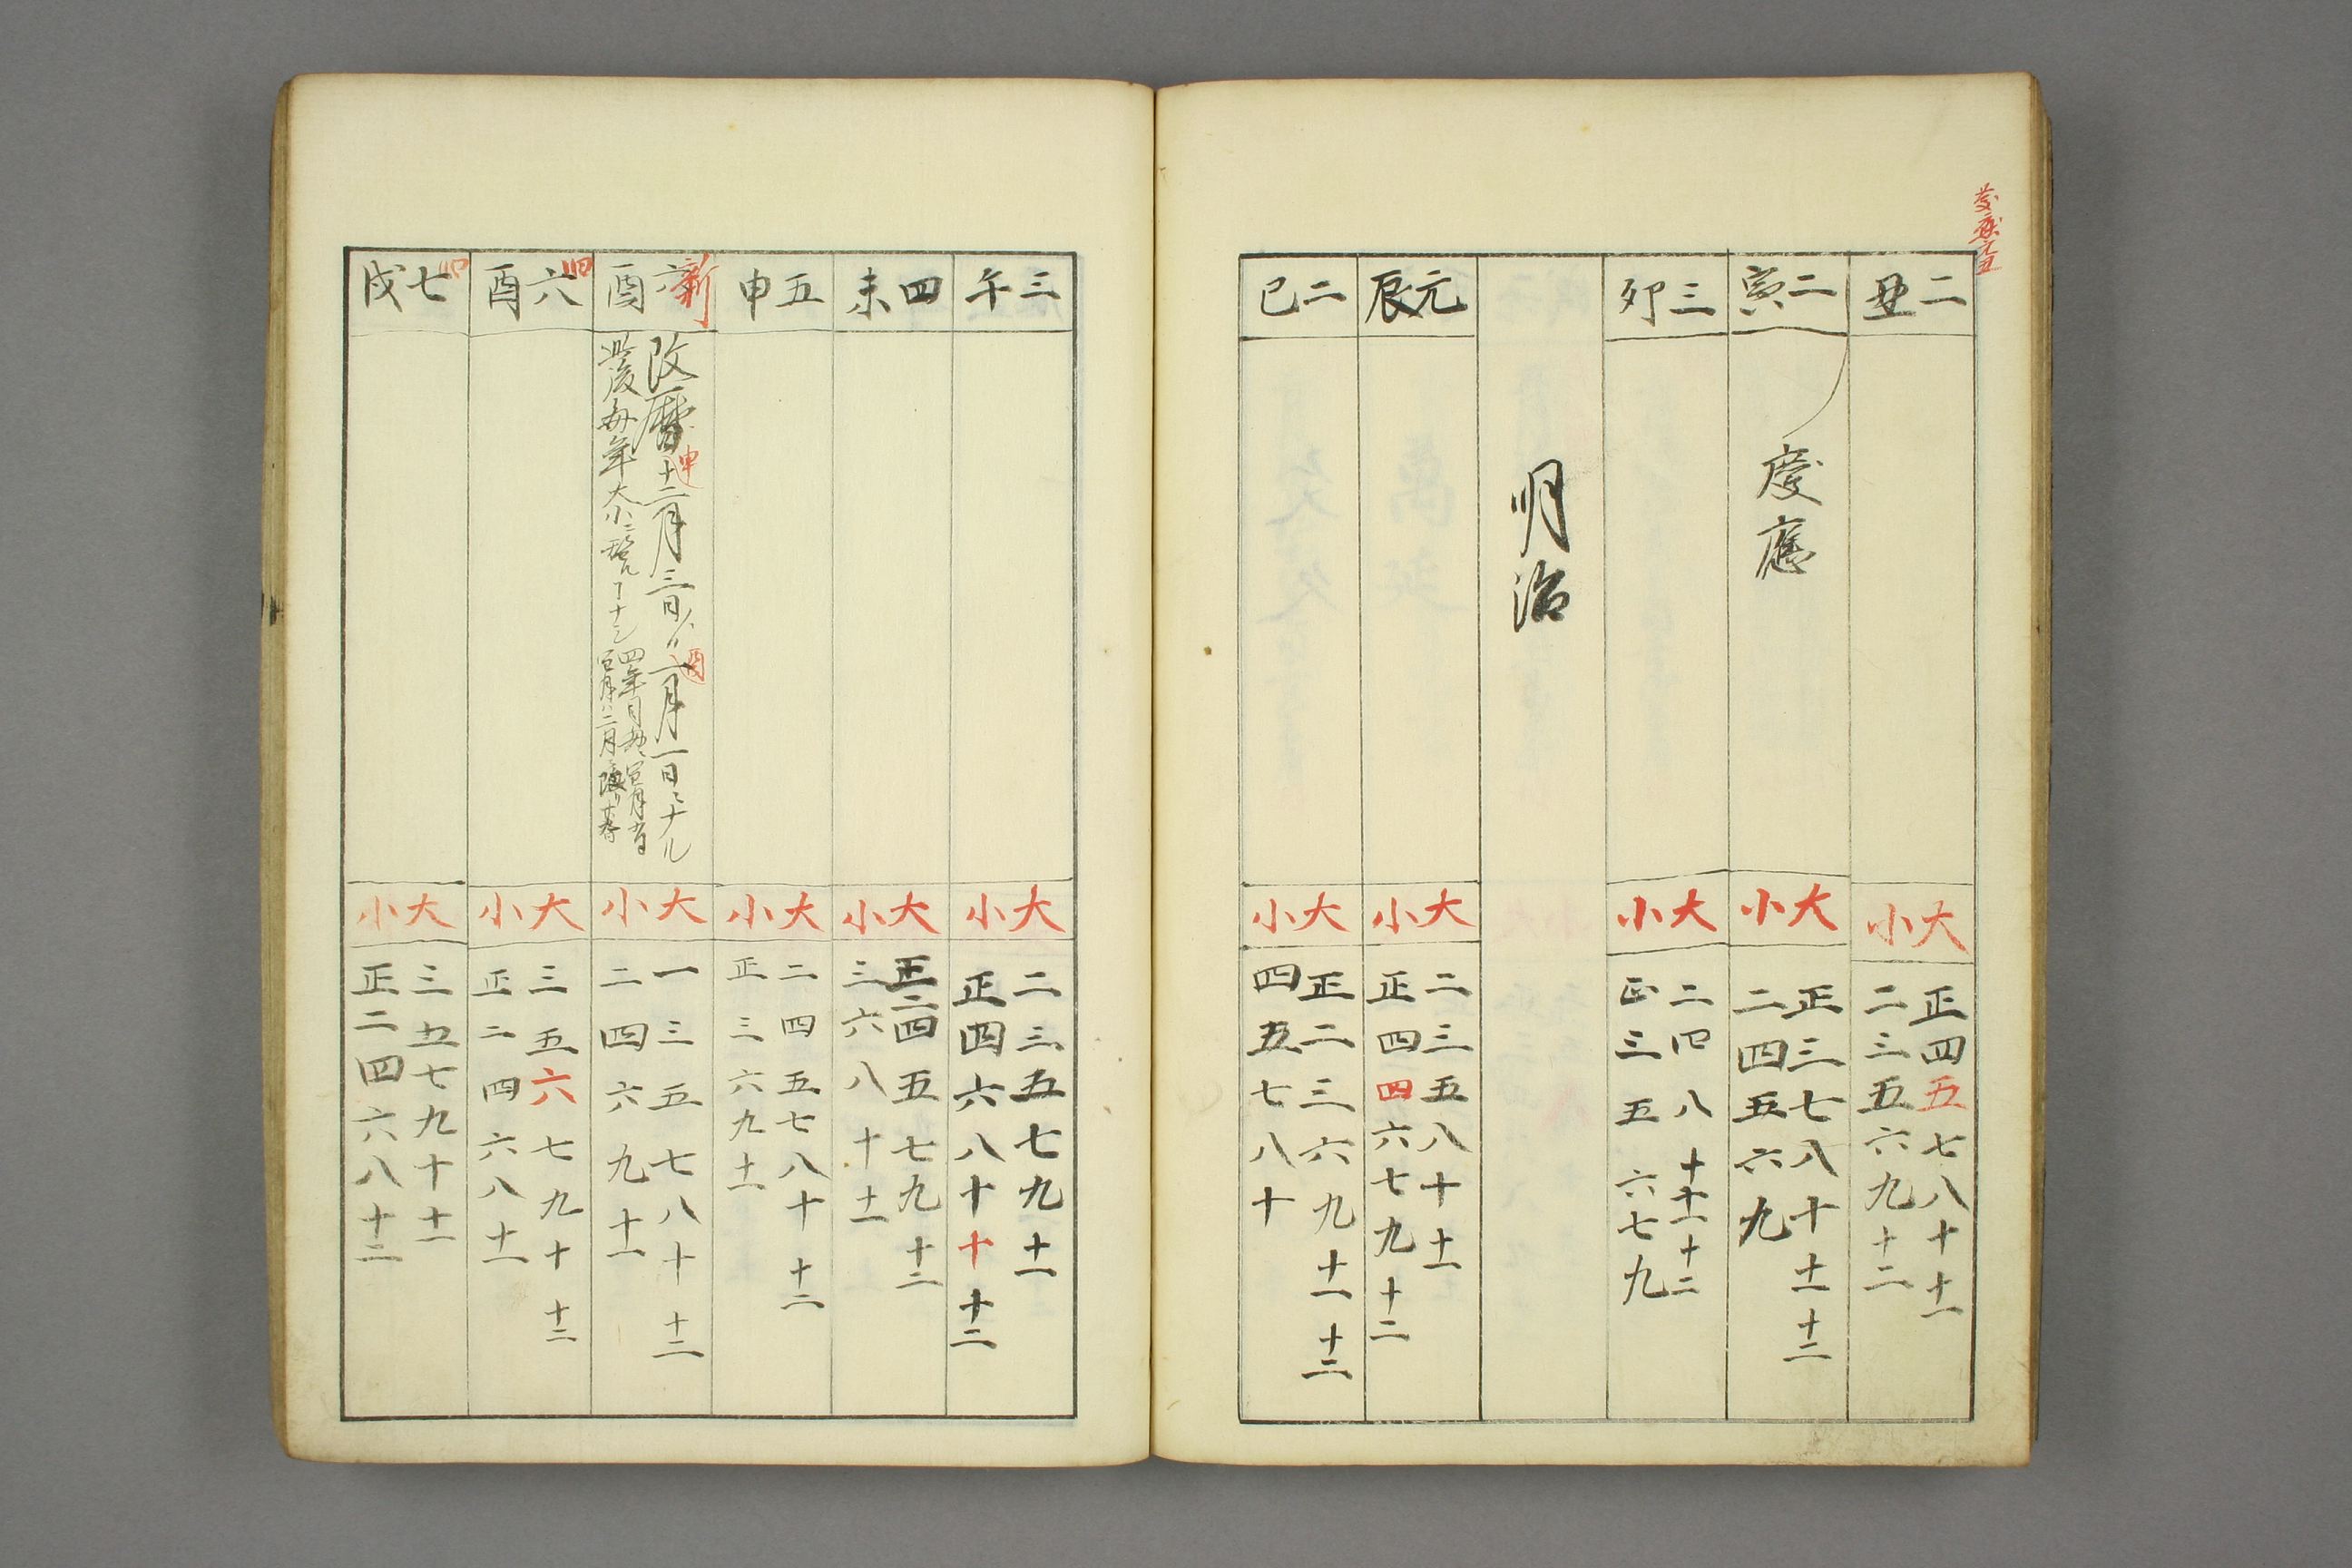 慶應元丑
二
丑
大
小
正四五七八十十一
二三五六九十二
二
寅
慶應
大
小
正三七八十十一十二
二四五六九
三
卯
大
小
二四八十十一十二
正三五六七九
明治
元
辰
大
小
二三五八十十一
正四四六七九十二
二
巳
大
小
正二三六九十一十二
四五七八十
三
午
大
小
二三五七九十一
正四六八十十十二
四
未
大
小
正二四五七九十二
三六八十十一
五
申
大
小
二四五七八十十二
正三六九十一
新
六
酉
改暦申十二月三日ハ酉一月一日ニナル
此後毎年大小ニ
四年目毎ニ
大
小
一三五七八十十二
二四六九十一
旧
六
酉
大
小
三五六七九十十二
正二四六八十一
旧
七
戌
大
小
三五七九十十一
正二四六八十二